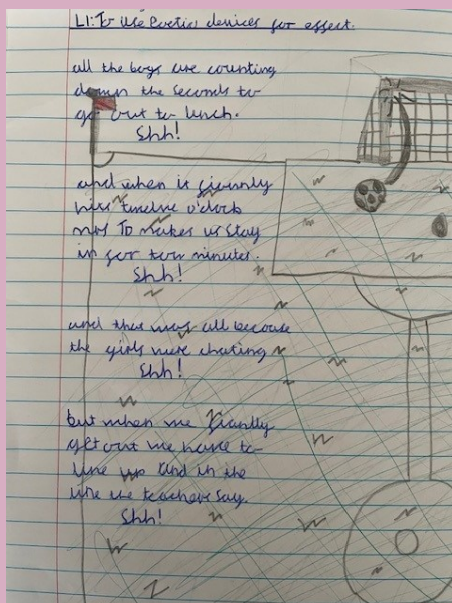 LI: To use Poetic devices for effect.
all the boys are counting
down the seconds to
get out to lunch.
Shh!
and when it finnly
hits twelve o'clock
mrs T makes us stay
in for ten minutes.
Shh!
and that was all because
the girls were chating
Shh!
but when we fianlly
get out we have to
line up and in the
line the teachers say.
Shh!